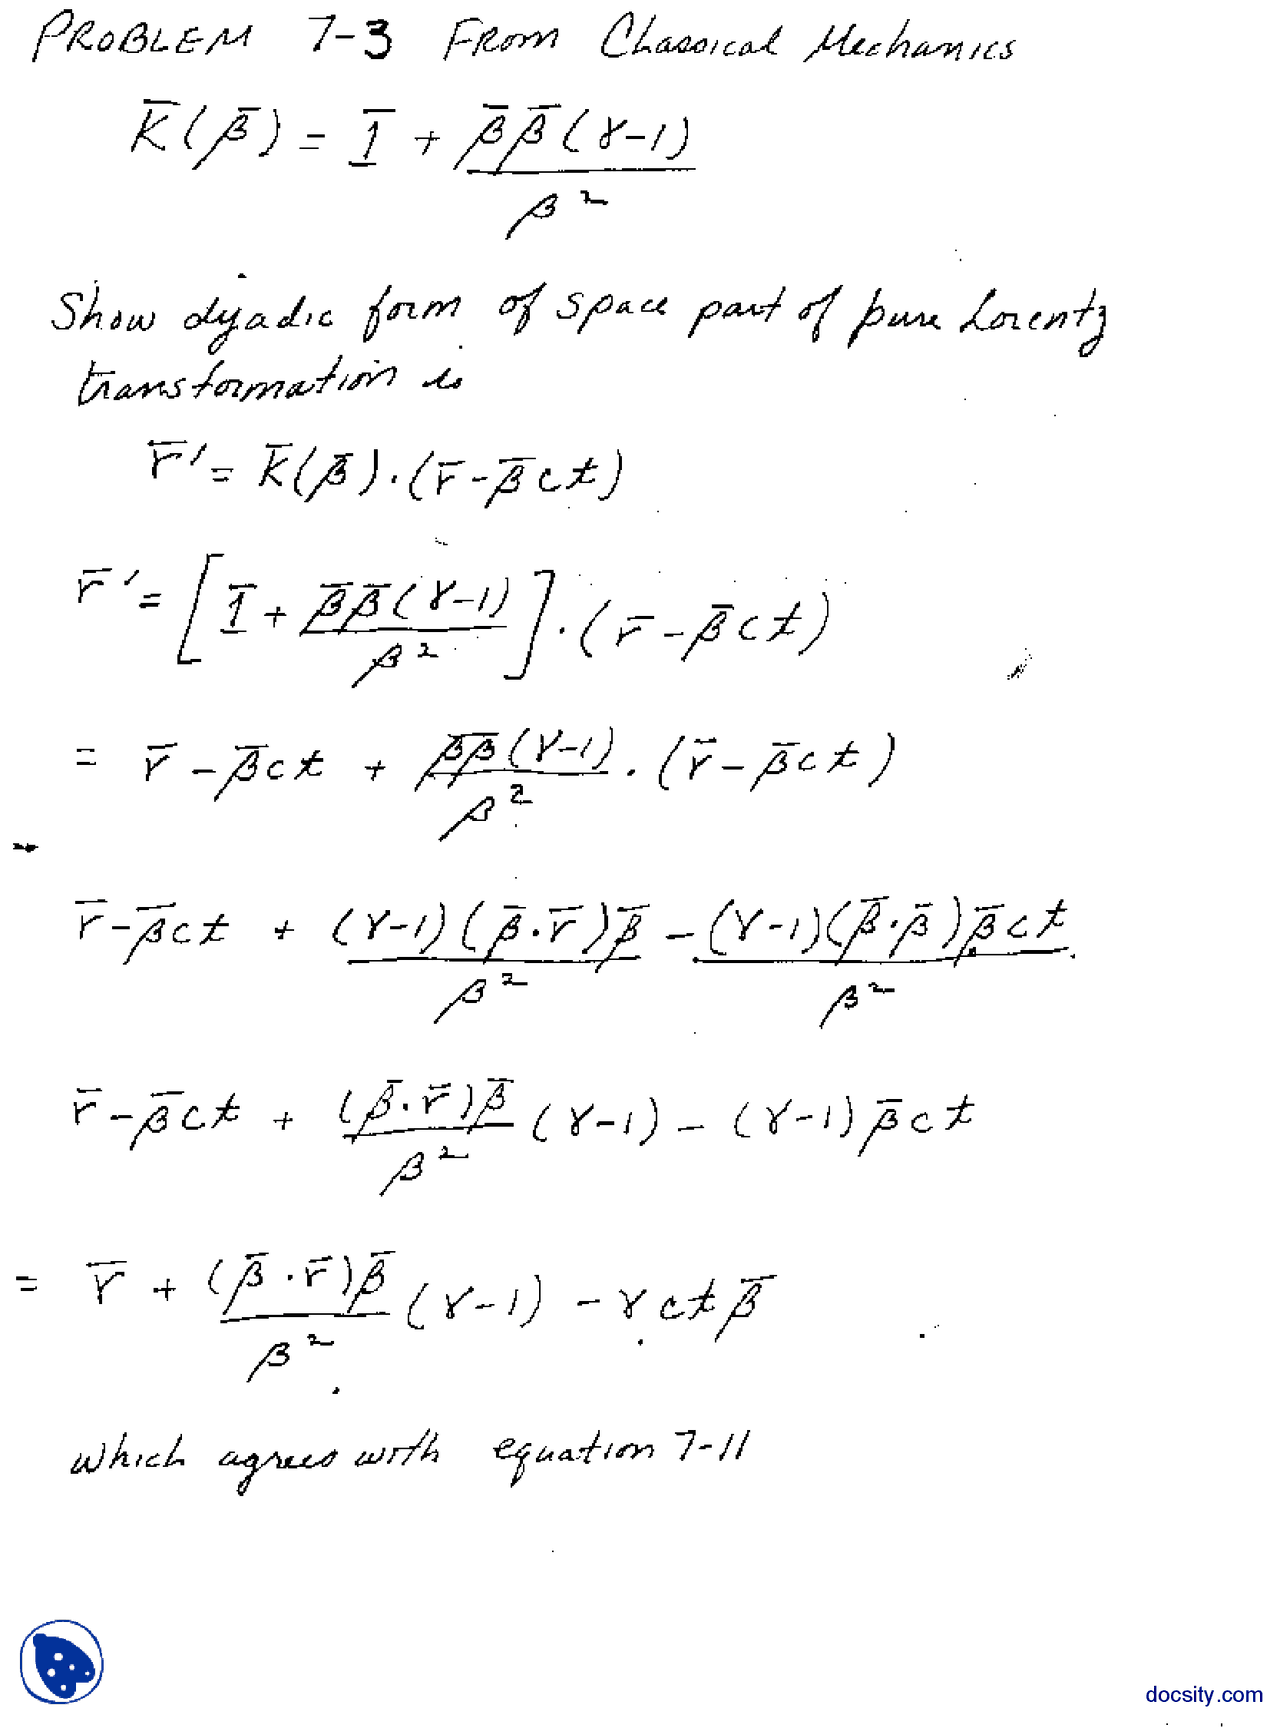 PROBLEM 7-3 FROM Classical Mechanics
K̄(β̄) = Ī + β̄β̄(γ-1)/β²
Show dyadic form of space part of pure Lorentz
transformation is
r̄' = K̄(β̄)·(r̄-β̄ct)
r̄' = [Ī + β̄β̄(γ-1)/β²]·(r̄-β̄ct)
= r̄-β̄ct + β̄β̄(γ-1)/β²·(r̄-β̄ct)
r̄-β̄ct + (γ-1)(β̄·r̄)β̄/β² - (γ-1)(β̄·β̄)β̄ct/β²
r̄-β̄ct + (β̄·r̄)β̄/β² (γ-1) - (γ-1)β̄ct
= r̄ + (β̄·r̄)β̄/β² (γ-1) - γctβ̄
which agrees with equation 7-11
docsity.com